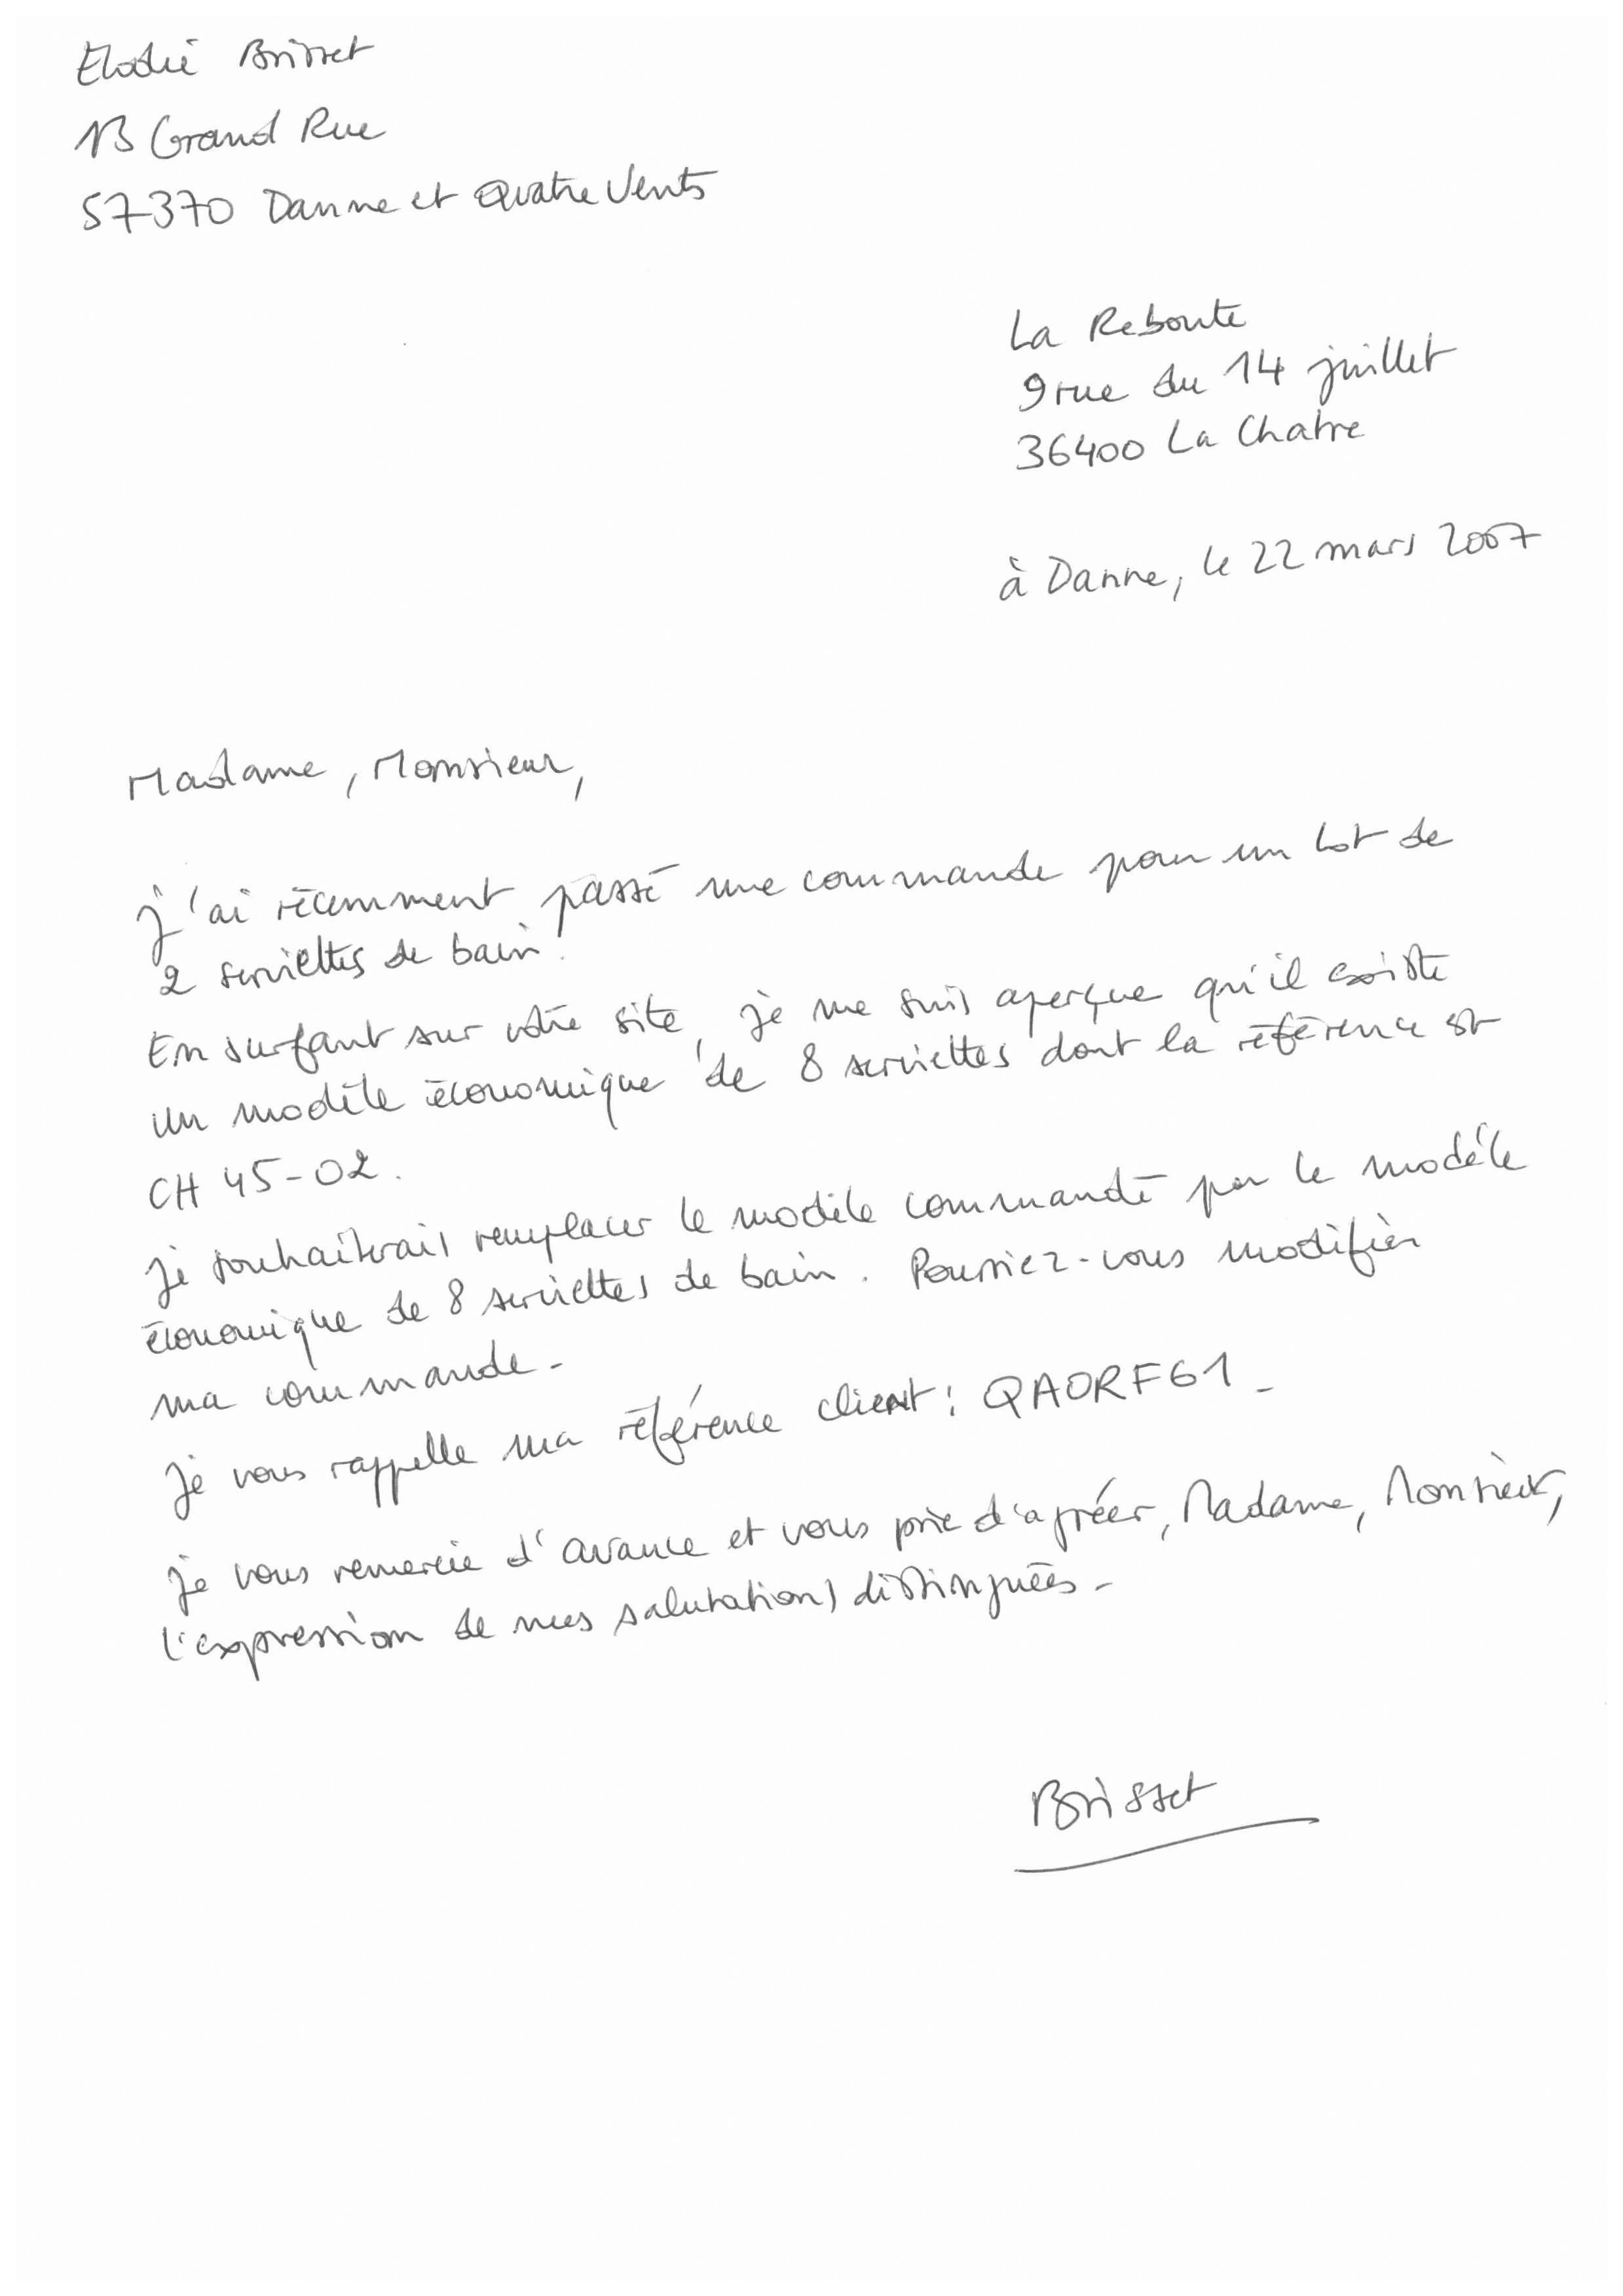 Elodie Brisset
13 Grand Rue
57370 Danne et Quatre Vents
La Reboute
9 rue du 14 juillet
36400 La Chatre
à Danne, le 22 mars 2007
Madame, Monsieur,
j'ai récemment passé une commande pour un lot de
2 serviettes de bain.
En surfant sur votre site, je me suis aperçue qu'il existe
un modèle économique de 8 serviettes dont la référence est
CH 45-02.
Je souhaiterais remplacer le modèle commandé par le modèle
économique de 8 serviettes de bain. Pourriez-vous modifier
ma commande.
Je vous rappelle ma référence client : QAORF61.
Je vous remercie d'avance et vous prie d'agréer, Madame, Monsieur,
l'expression de mes salutations distinguées.
Brisset